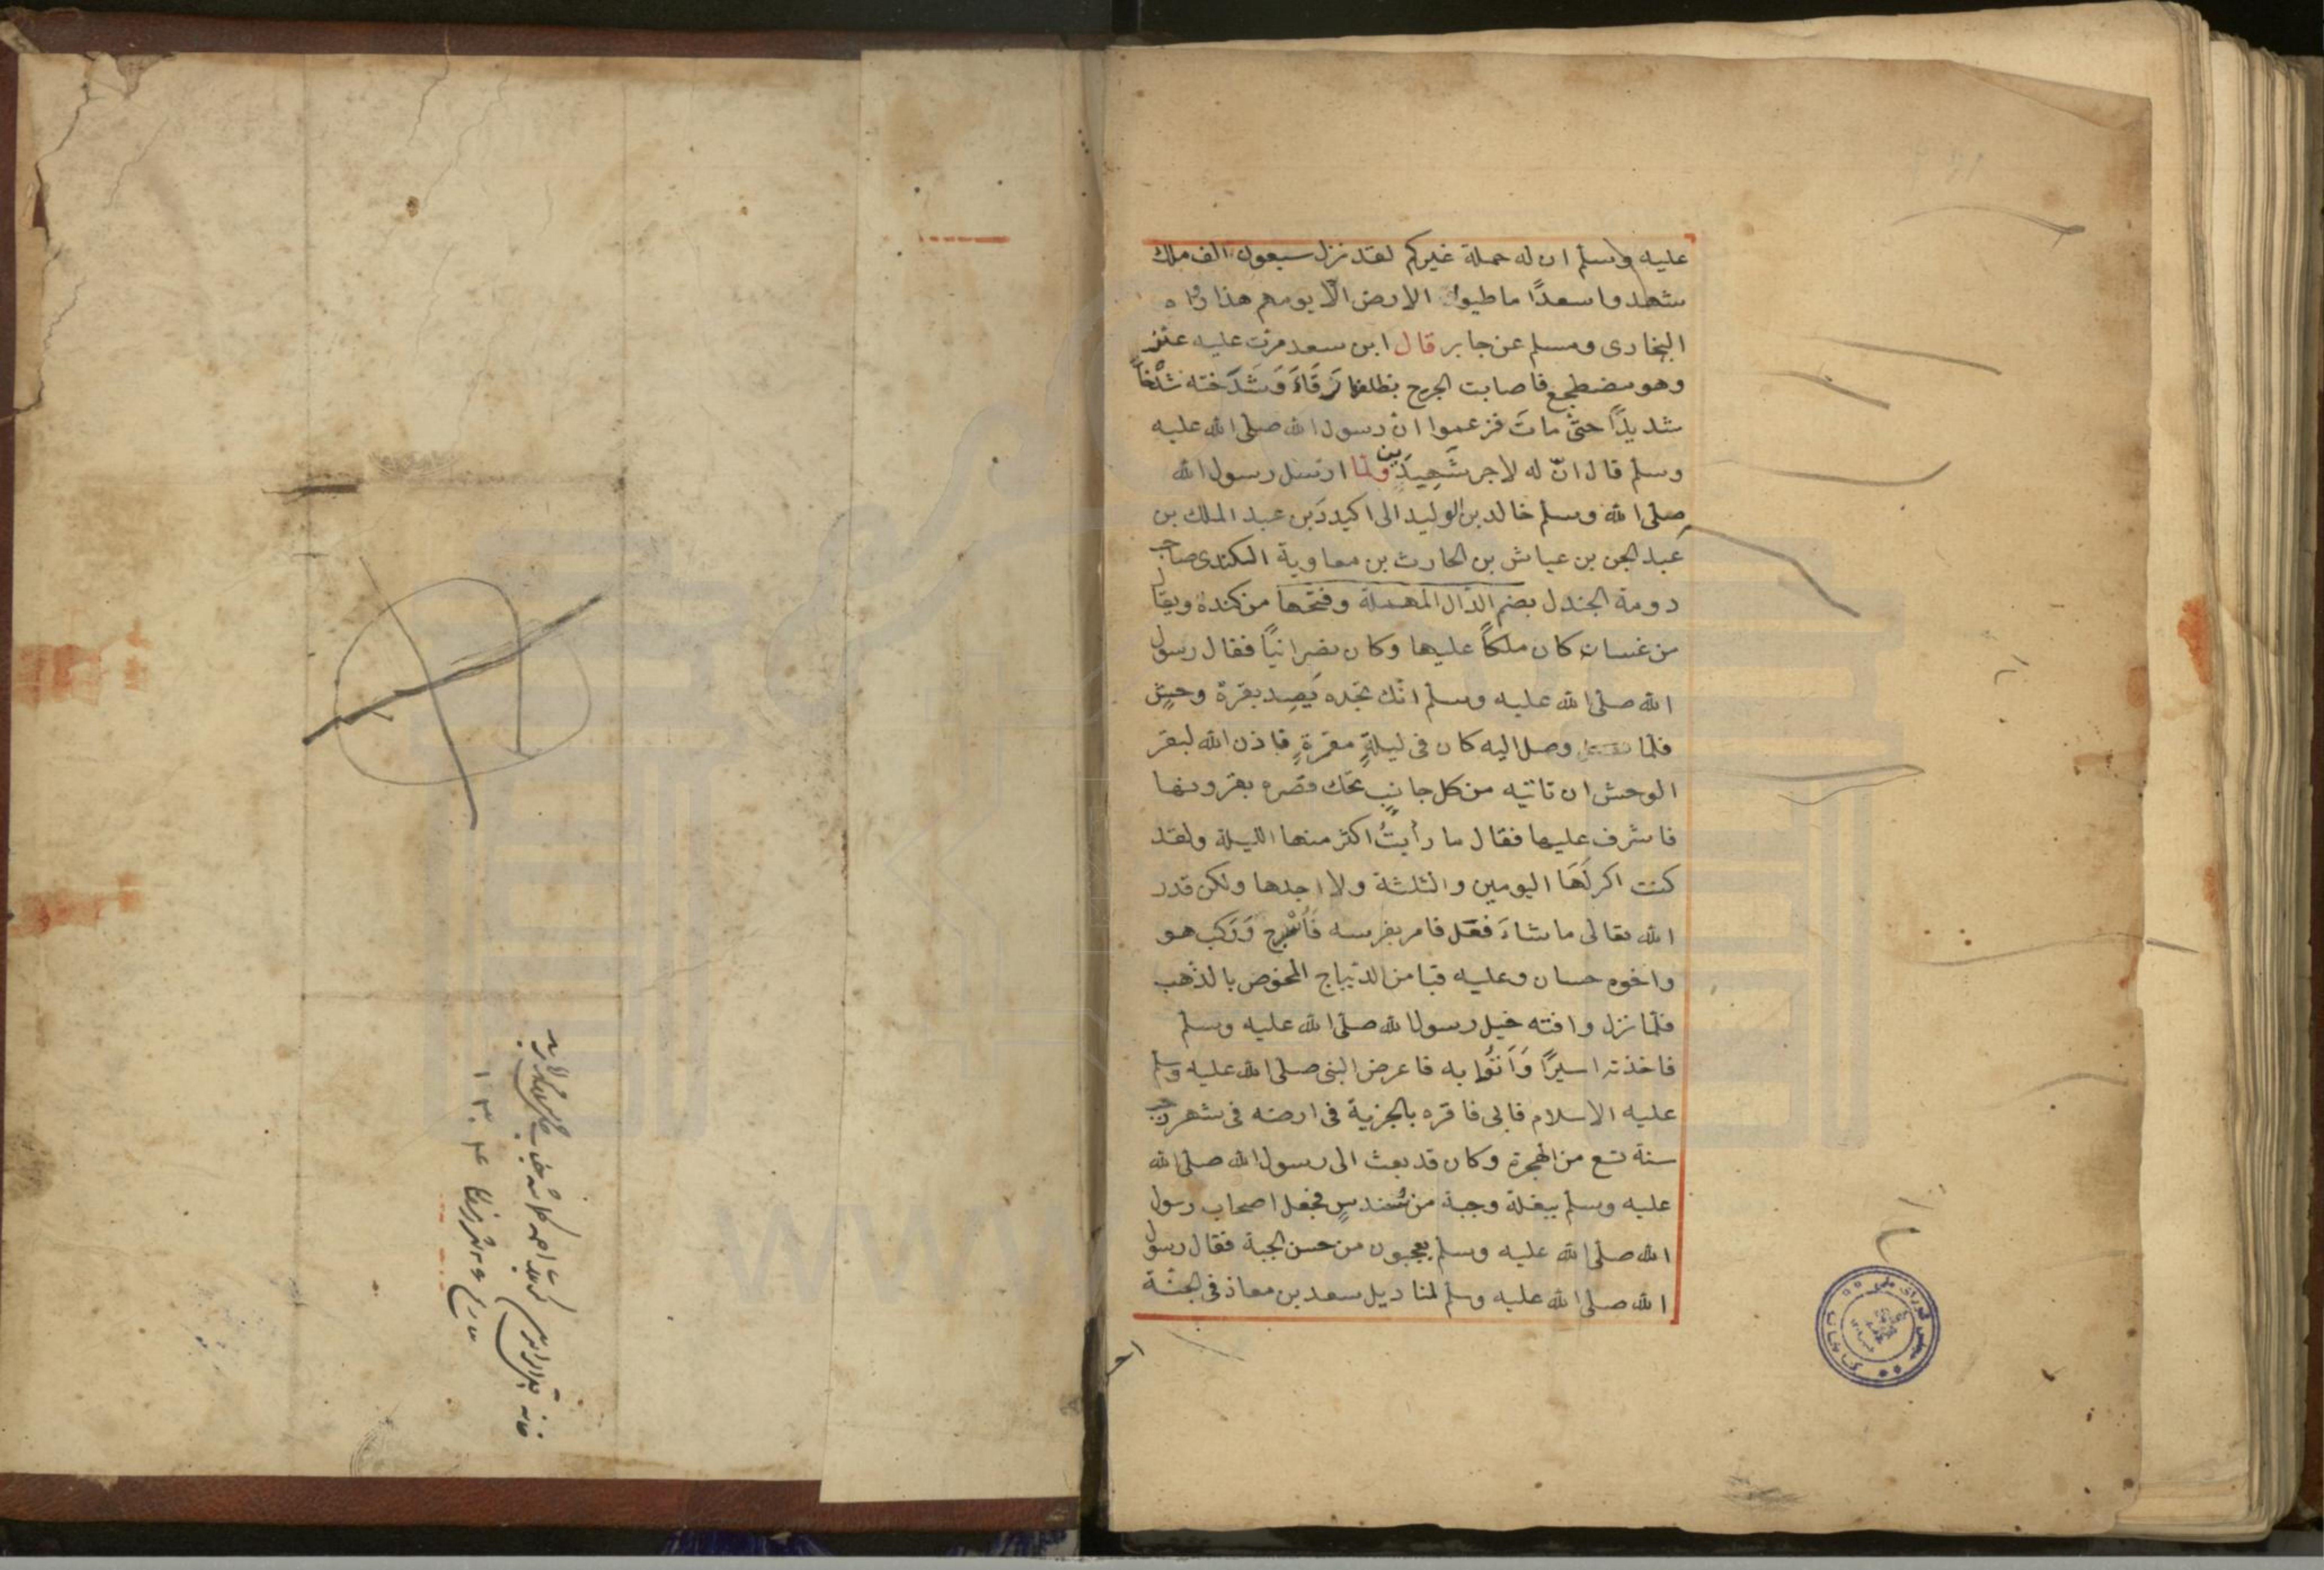 عليه وسلم ان له حملة غيركم لقد نزل سبعون الف ملك
شهدوا سعدًا ما طيوا الارض الّا يومهم هذا رواه
البخارى ومسلم عن جابر قال ابن سعد مرت عليه عنز
وهو مضطجع فاصابت الجرح بظلفها فَرَقَاءَ وَشَدَخته شَدْخاً
شديدًا حتى مات فزعموا ان رسول الله صلى الله عليه
وسلم قال انّ له لاجر شَهِيدَين ولما ارسل رسول الله
صلى الله وسلم خالد بن الوليد الى اكيدر بن عبد الملك بن
عبد الجن بن عياش بن الحارث بن معاوية الكندى صاحب
دومة الجندل بضم الدّال المهملة وفتحها من كندة ويقال
من غسان كان ملكاً عليها وكان نصرانيًا فقال رسول
الله صلى الله عليه وسلم انك تجده يَصِد بقرة وحش
فلما وصل اليه كان فى ليلةٍ مقمرةٍ فاذن الله لبقر
الوحش ان تاتيه من كل جانبٍ تحك قصره بقرونها
فاشرف عليها فقال ما رأيتُ اكثر منها الليلة ولقد
كنت اكر لَهَا اليومين والثلثة ولا اجدها ولكن قدر
الله تعالى ما شاءَ فعَل فامر بفرسه فَأُسْرج وَرَكب هو
واخوه حسان وعليه قبا من الديباج المخوض بالذهب
فلما نزل وافته خيل رسول الله صلى الله عليه وسلم
فاخذته اسيرًا وَاَتَوُا به فاعرض النبى صلى الله عليه وسلم
عليه الاسلام فابى فاقره بالجزية فى ارضه فى شهر رجب
سنة تسع من الهجرة وكان قد بعث الى رسول الله صلى الله
عليه وسلم ببغلة وجبة من سُندسٍ فجعل اصحاب رسول
الله صلى الله عليه وسلم يعجبون من حسن الجبة فقال رسول
الله صلى الله عليه وسلم لمناديل سعد بن معاذ فى الجنّة